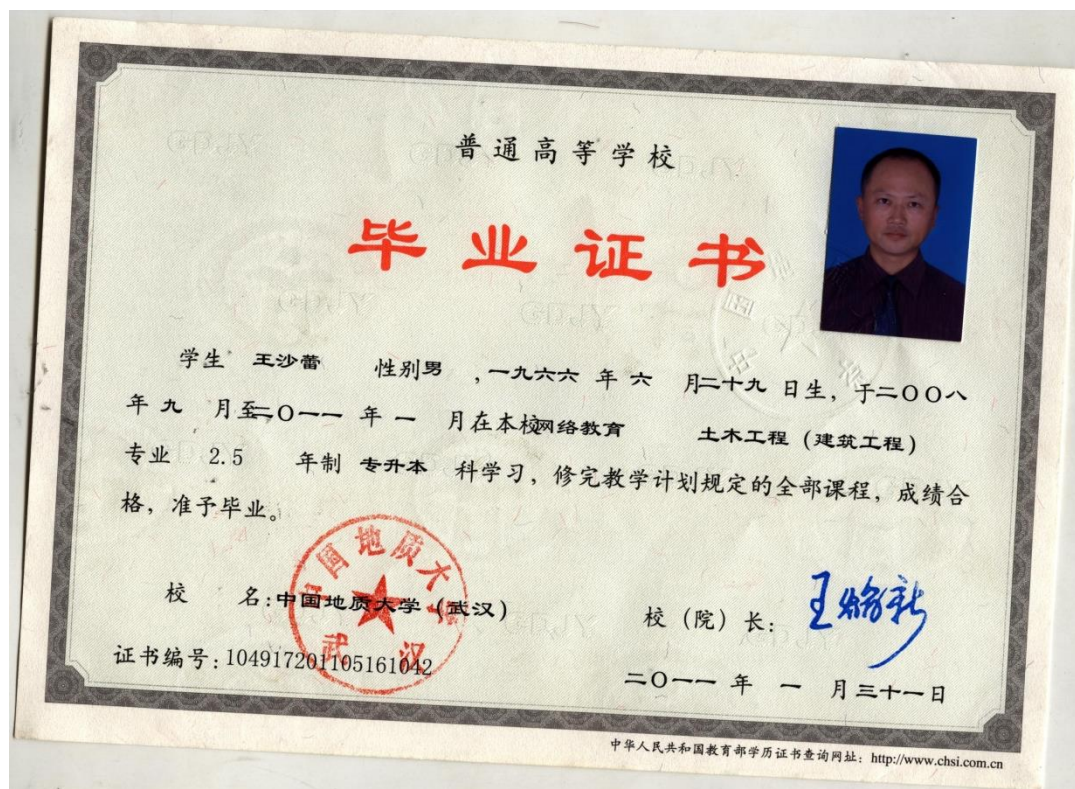 普通高等学校
毕业证书
学生 王沙蕾 性别男 ,一九六六 年 六 月二十九 日生，于二〇〇八
年 九 月至二〇一一 年 一 月在本校网络教育 土木工程（建筑工程）
专业 2.5 年制 专升本 科学习，修完教学计划规定的全部课程，成绩合
格，准予毕业。
中国地质大学
武汉
校 名:中国地质大学（武汉） 校（院）长:
证书编号:104917201105161042
二〇一一 年 一 月三十一日
中华人民共和国教育部学历证书查询网址: http://www.chsi.com.cn